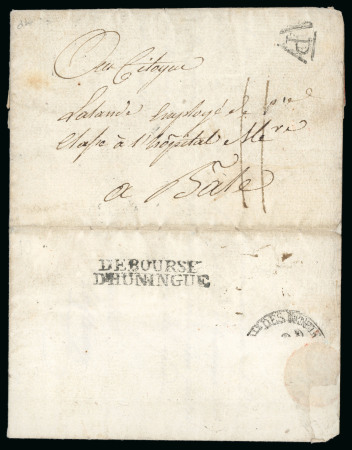 P
Au Citoyen
Lalande Employé de 1re
Classe à l'hôpital Mre
11
a Bâle
DEBOURSÉ
D'HUNINGUE